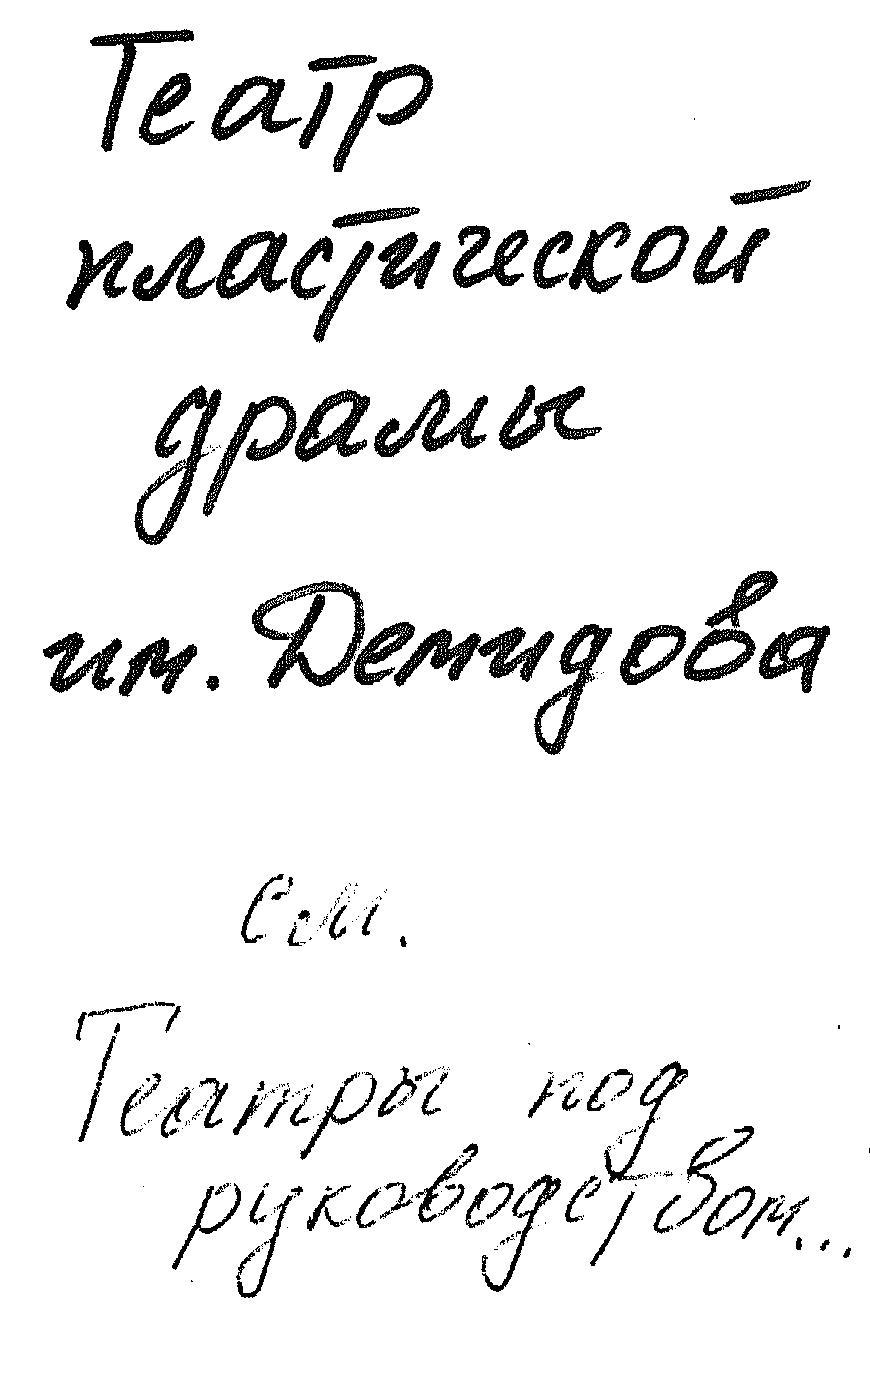 Театр
пластической
драмы
им. Демидова
см.
Театры под
руководством...